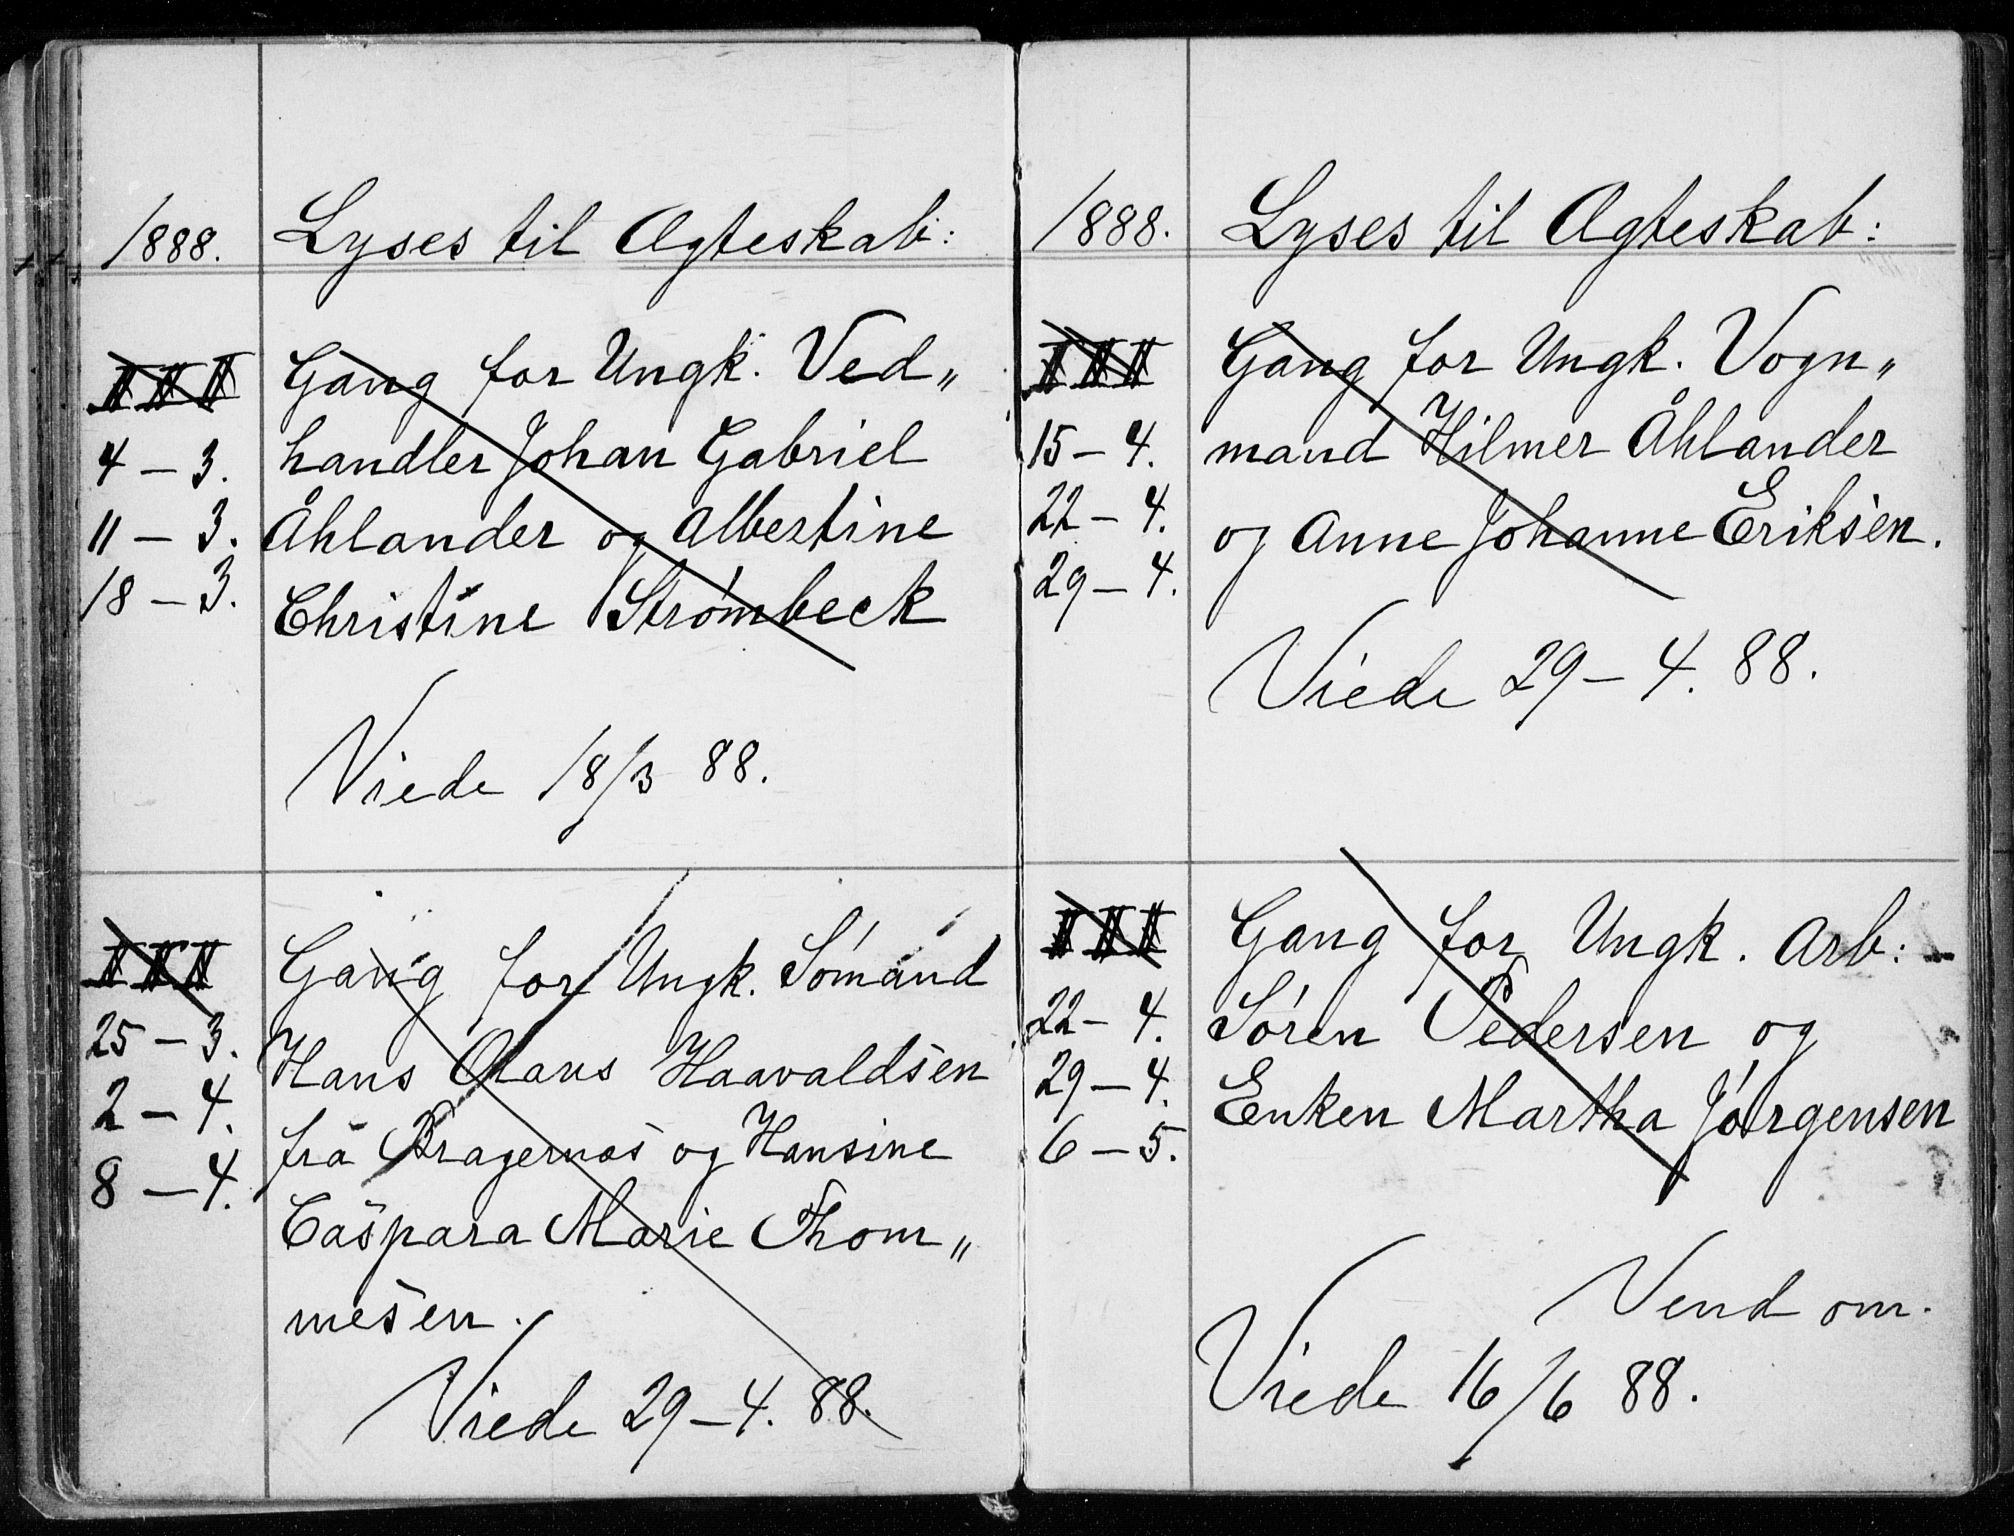 1888. Lyses til Ægteskab:
I II III Gang for Ungk. Ved„
4 – 3. handler Johan Gabriel
11 – 3. Åhlander og Albertine
18 – 3. Christine Strømbeck
Viede 18/3 88.
I II III Gang for Ungk. Sömand
25 – 3. Hans Olaus Haavaldsen
2 – 4. fra Bragernæs og Hansine
8 – 4. Caspara Marie Thom„
mesen.
Viede 29 – 4. 88.
1888. Lyses til Ægteskab:
I II III Gang for Ungk. Vogn„
15 – 4. mand Hilmer Åhlander
22 – 4. og Anne Johanne Eriksen.
29 – 4.
Viede 29 – 4. 88.
I II III Gang for Ungk. Arb:
22 – 4. Sóren Pedersen og
29 – 4. Enken Martha Jórgensen
6 – 5.
Vend om.
Viede 16/6 88.